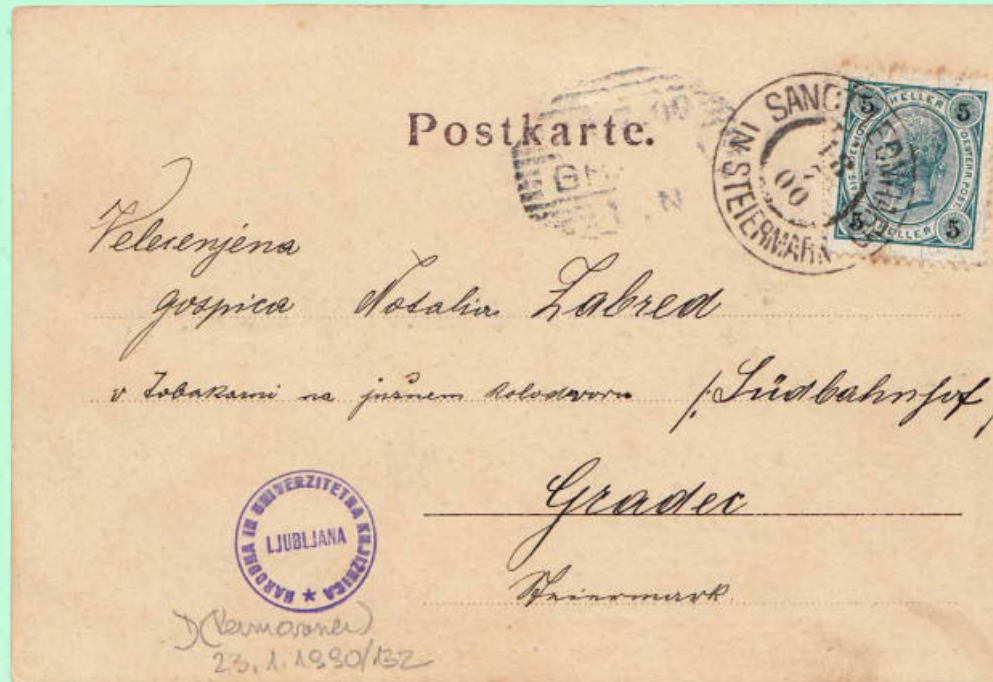 Postkarte.
SANCT EGYDI
IN STEIERMARK
18
00
5 HELLER 5
5 HELLER 5
Velecenjena
gospica Natalia Zabred
v Tobakarni na južnem kolodvoru /:Südbahnhof
Gradec
Steiermark
NARODNA IN UNIVERZITETNA KNJIŽNICA
LJUBLJANA
23.1.1990/132